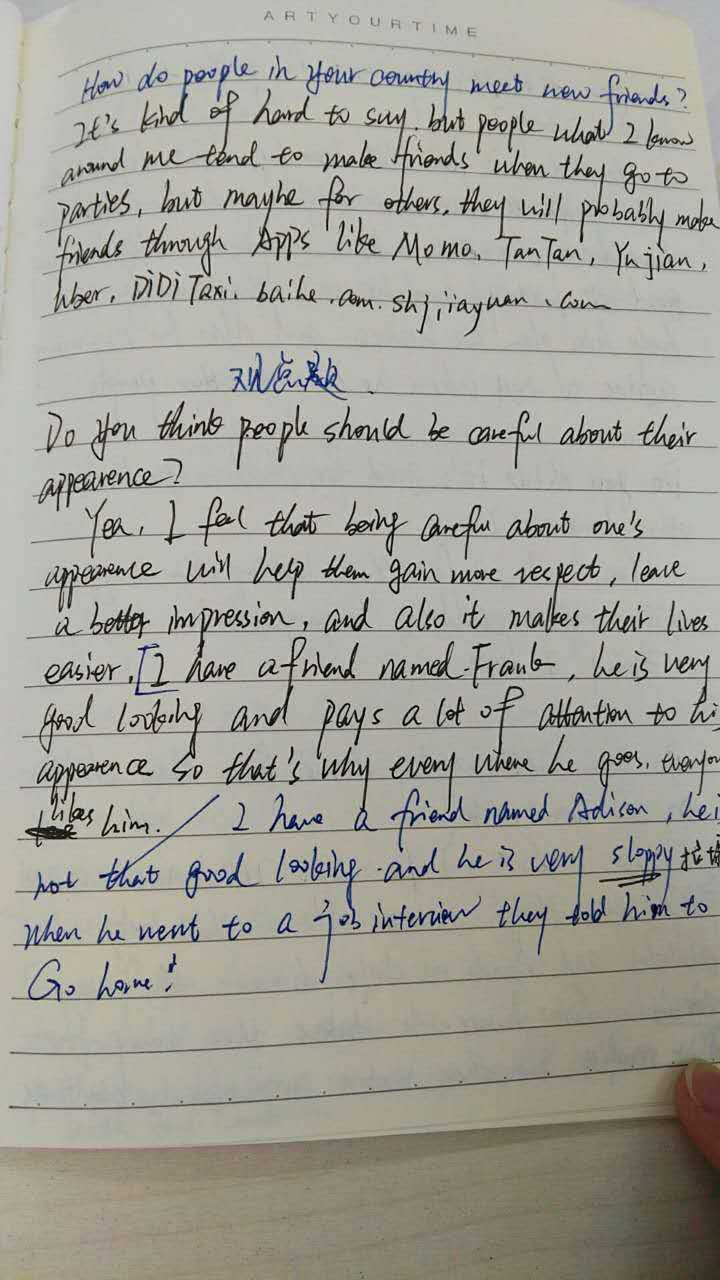 ARTYOURTIME
How do people in your country meet new friends?
It's kind of hard to say. but people what I know
around me tend to make friends when they go to
parties, but maybe for others, they will probably make
friends through Apps like Momo, TanTan, Yujian,
Uber, DiDi Taxi. baihe.com. shjjiayuan.com
观点题
Do you think people should be careful about their
appearence?
Yea, I feel that being careful about one's
appearence will help them gain more respect, leave
a better impression, and also it makes their lives
easier. [I have a friend named Frank, he is very
good looking and pays a lot of attention to his
appearence so that's why every where he goes, everyon
likes him. I have a friend named Adison, he i
not that good looking and he is very sloppy
When he went to a job interview they told him to
Go home!